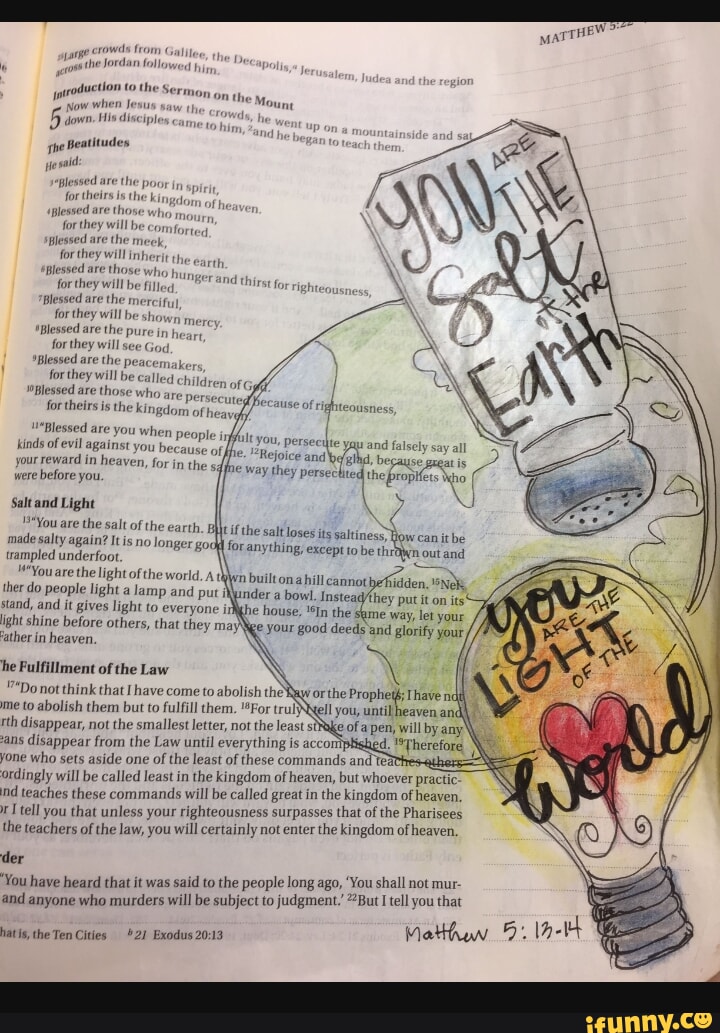 MATTHEW 5:22
25Large crowds from Galilee, the Decapolis,a Jerusalem, Judea and the region
across the Jordan followed him.
Introduction to the Sermon on the Mount
5 Now when Jesus saw the crowds, he went up on a mountainside and sat
down. His disciples came to him, 2and he began to teach them.
The Beatitudes
He said:
3“Blessed are the poor in spirit,
for theirs is the kingdom of heaven.
4Blessed are those who mourn,
for they will be comforted.
5Blessed are the meek,
for they will inherit the earth.
6Blessed are those who hunger and thirst for righteousness,
for they will be filled.
7Blessed are the merciful,
for they will be shown mercy.
8Blessed are the pure in heart,
for they will see God.
9Blessed are the peacemakers,
for they will be called children of God.
10Blessed are those who are persecuted because of righteousness,
for theirs is the kingdom of heaven.
11“Blessed are you when people insult you, persecute you and falsely say all
kinds of evil against you because of me. 12Rejoice and be glad, because great is
your reward in heaven, for in the same way they persecuted the prophets who
were before you.
Salt and Light
13“You are the salt of the earth. But if the salt loses its saltiness, how can it be
made salty again? It is no longer good for anything, except to be thrown out and
trampled underfoot.
14“You are the light of the world. A town built on a hill cannot be hidden. 15Nei-
ther do people light a lamp and put it under a bowl. Instead they put it on its
stand, and it gives light to everyone in the house. 16In the same way, let your
light shine before others, that they may see your good deeds and glorify your
Father in heaven.
The Fulfillment of the Law
17“Do not think that I have come to abolish the Law or the Prophets; I have not
ome to abolish them but to fulfill them. 18For truly I tell you, until heaven and
rth disappear, not the smallest letter, not the least stroke of a pen, will by any
eans disappear from the Law until everything is accomplished. 19Therefore
yone who sets aside one of the least of these commands and teaches others
ordingly will be called least in the kingdom of heaven, but whoever practic-
nd teaches these commands will be called great in the kingdom of heaven.
or I tell you that unless your righteousness surpasses that of the Pharisees
the teachers of the law, you will certainly not enter the kingdom of heaven.
rder
“You have heard that it was said to the people long ago, ‘You shall not mur-
and anyone who murders will be subject to judgment.’ 22But I tell you that
hat is, the Ten Cities b 21 Exodus 20:13
YOU ARE
THE
Salt
of the
Earth
you
ARE THE
LIGHT
OF THE
World
Matthew 5:13-14
ifunny.co